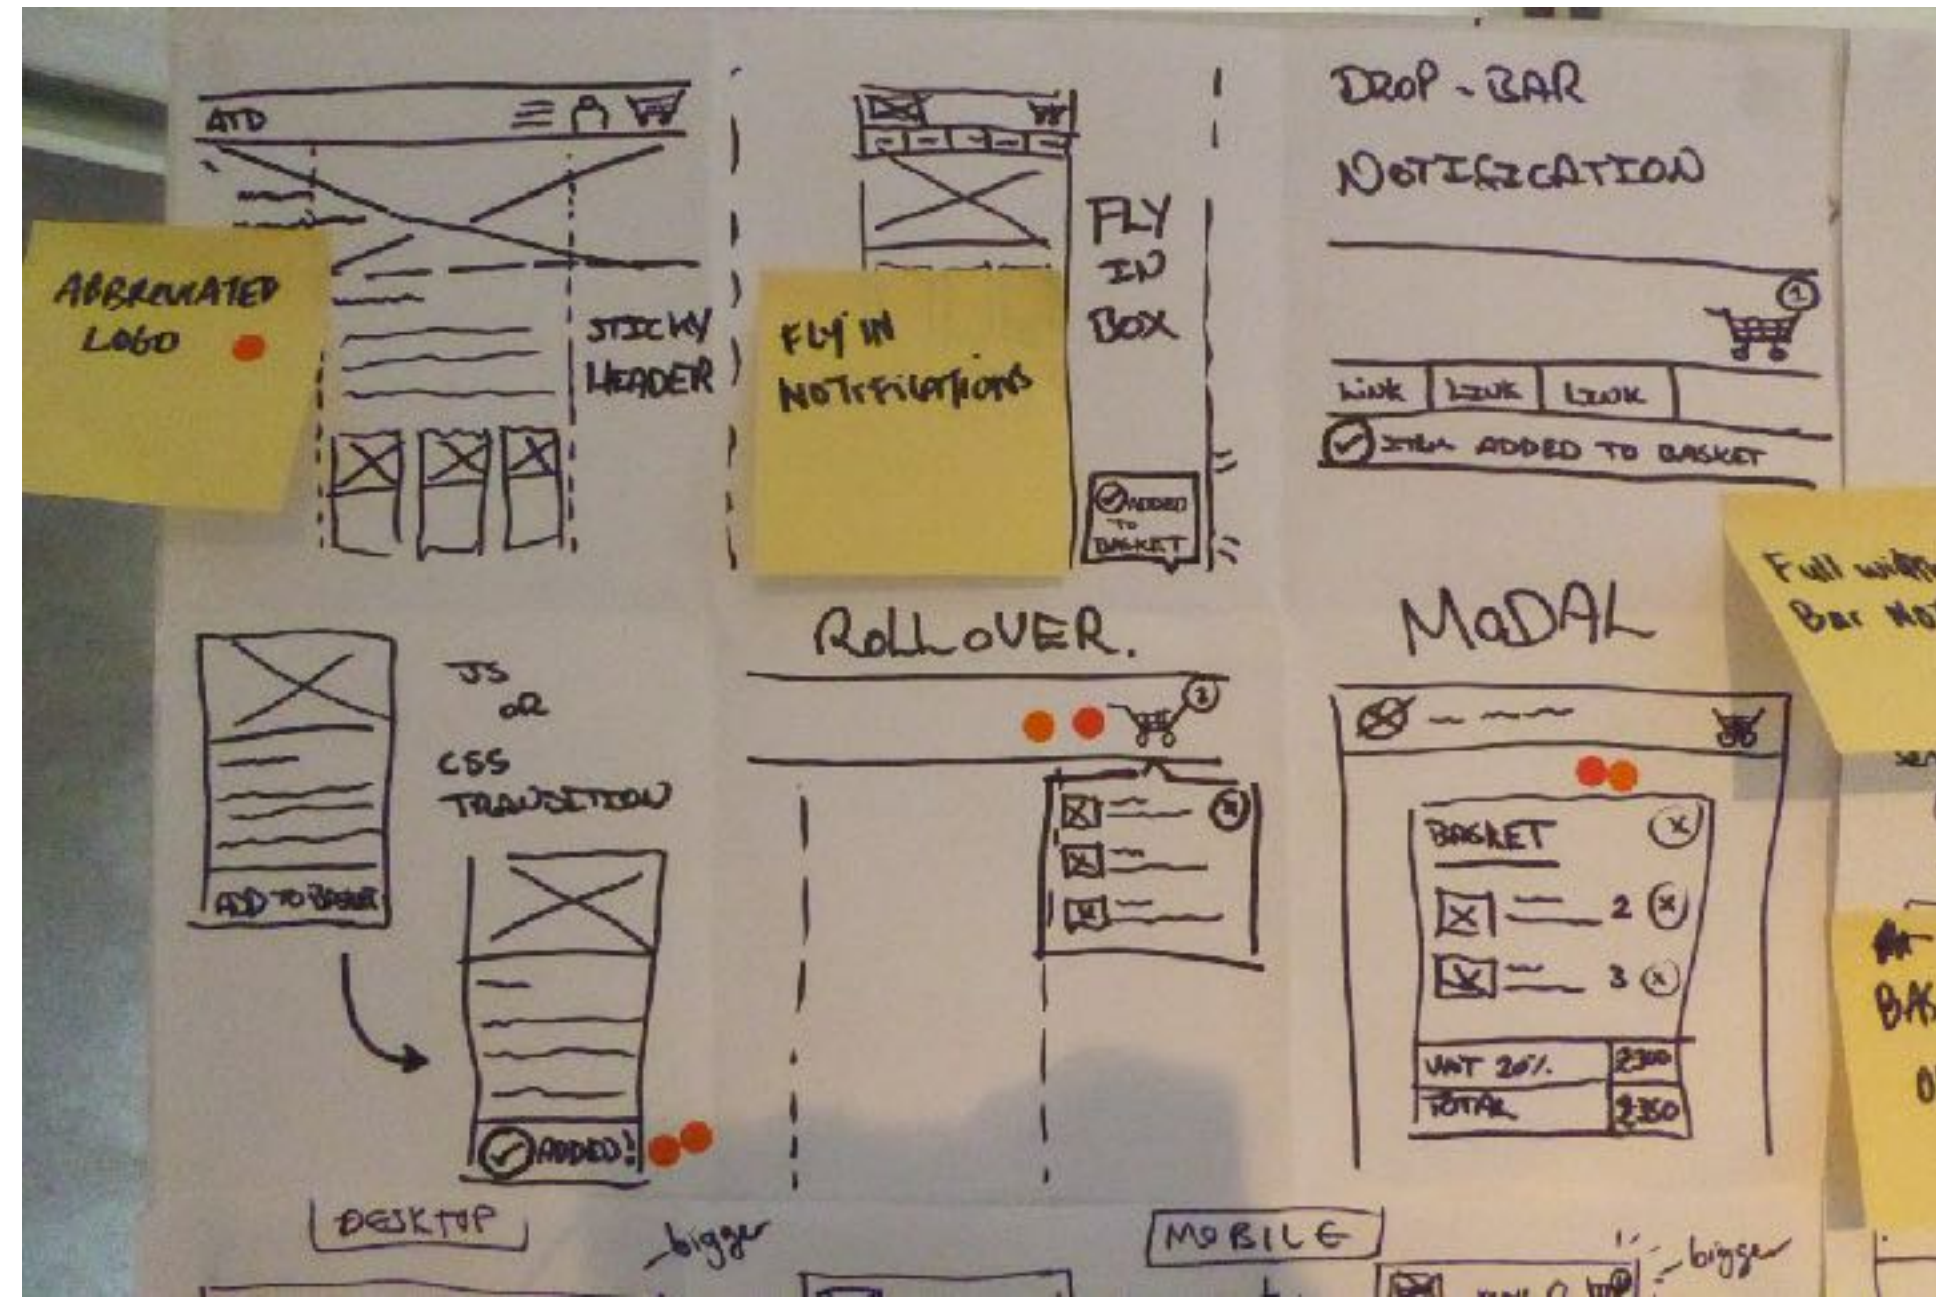 ATD
ABBREVIATED
LOGO
STICKY
HEADER
FLY IN
NOTIFICATIONS
FLY
IN
BOX
ADDED
TO
BASKET
DROP-BAR
NOTIFICATION
1
LINK LINK LINK
ITEM ADDED TO BASKET
Full width
Bar
JS
OR
CSS
TRANSITION
ADD TO BASKET
ADDED!
ROLLOVER.
MODAL
BASKET X
2 X
3 X
VAT 20%
TOTAL
DESKTOP
bigger
MOBILE
bigger